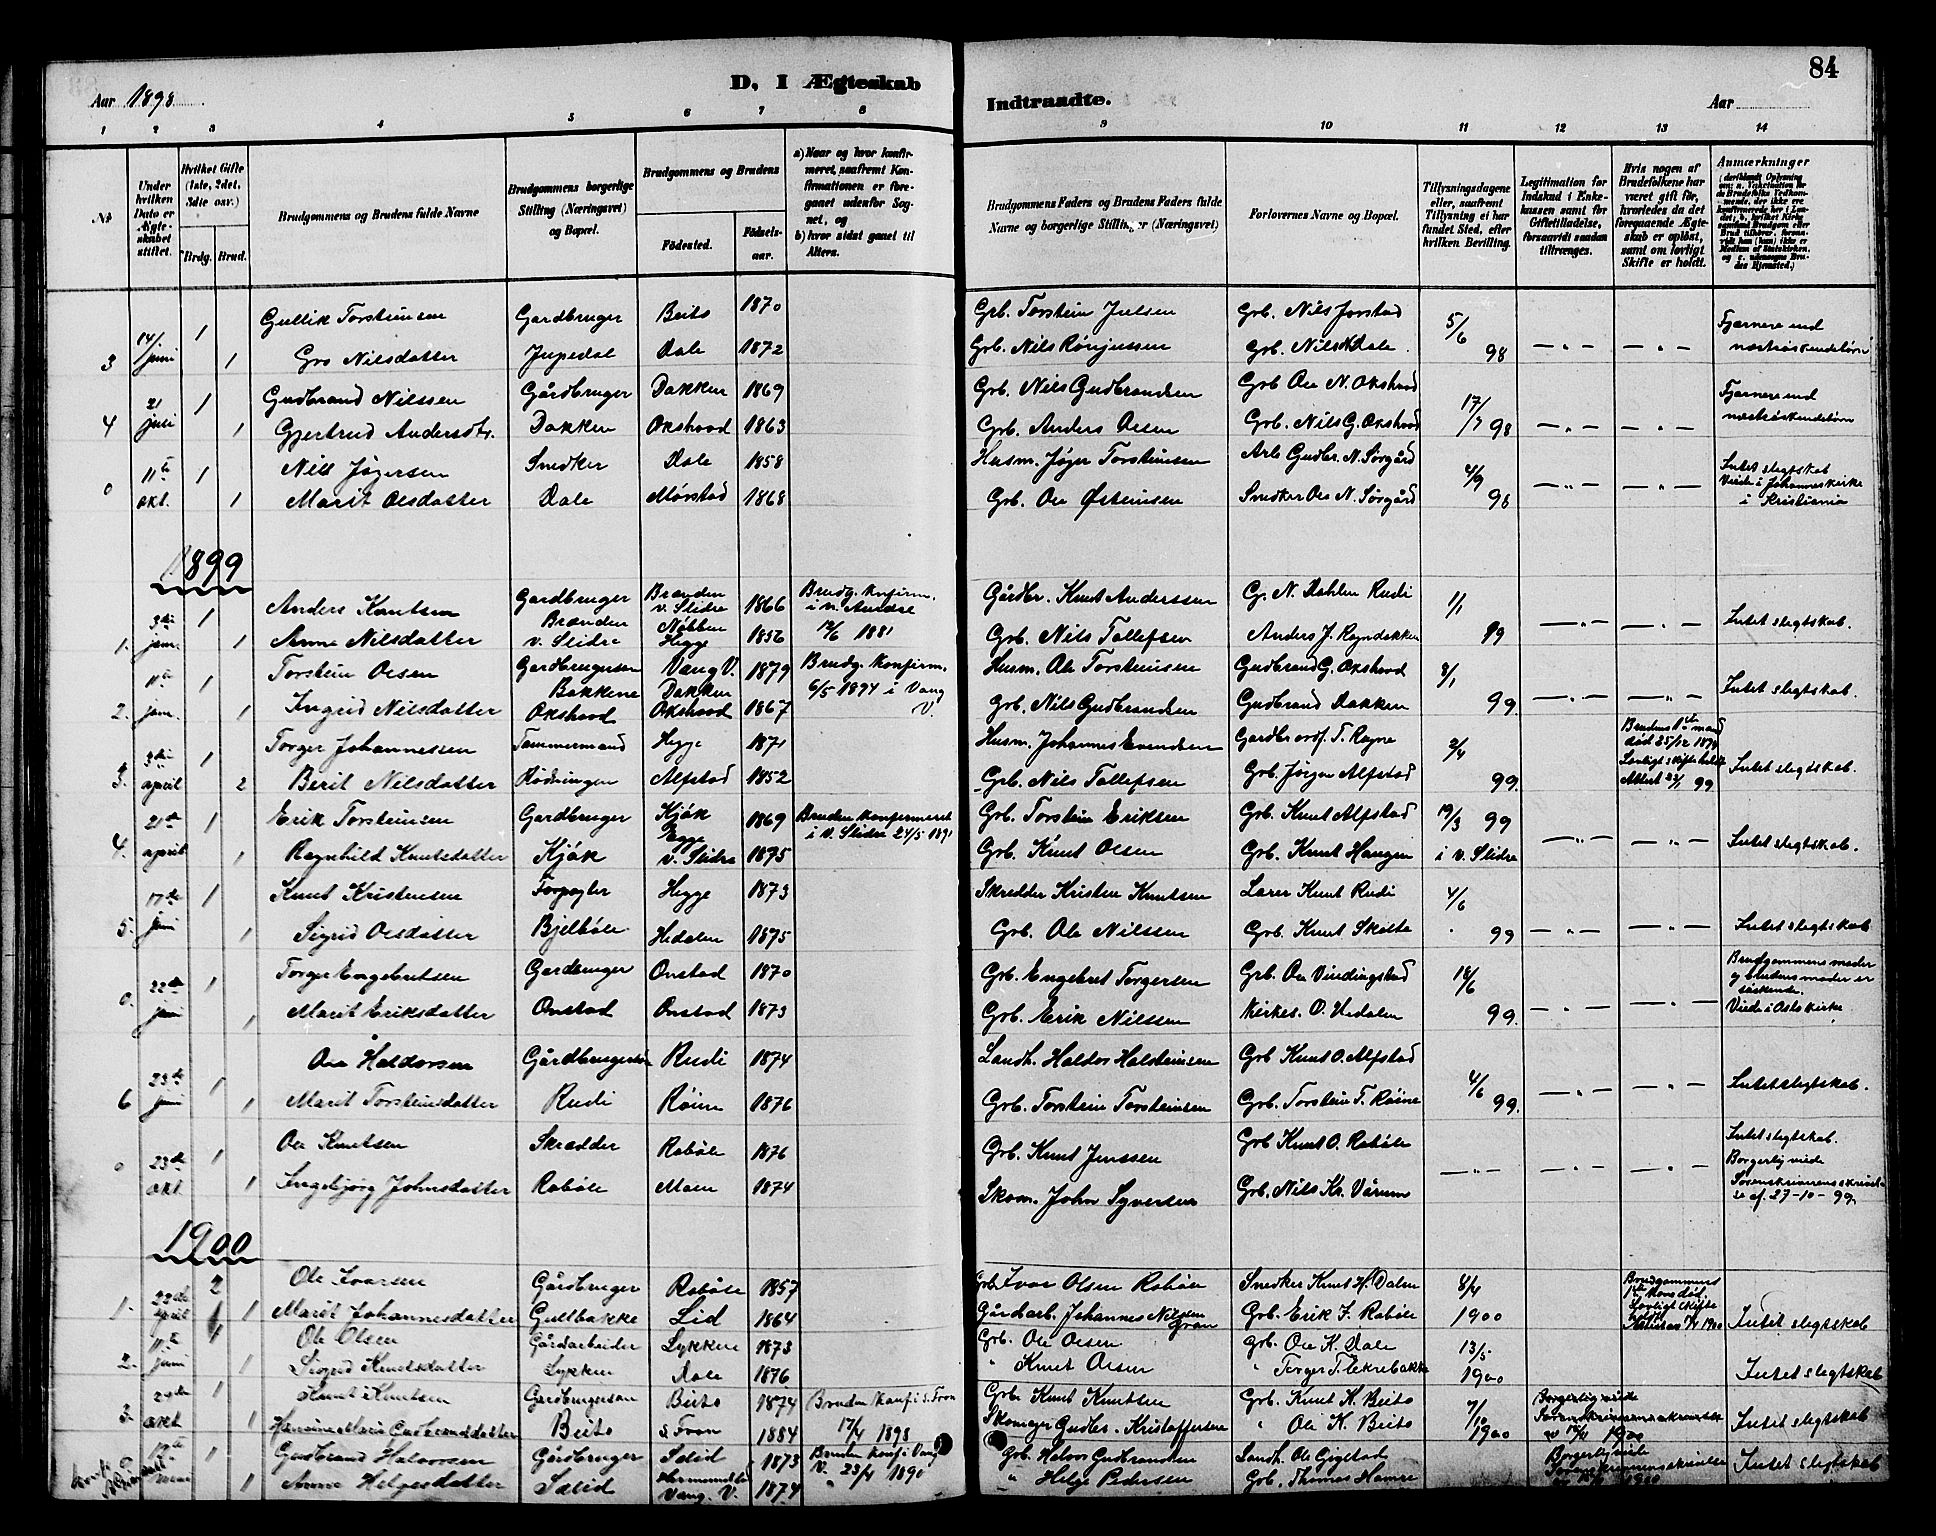 84
Aar 1898
D, I Ægteskab
Indtraadte.
Aar
1 2 3 4 5 6 7 8 9 10 11 12 13 14
No
Under hvilken Dato er Ægteskabet stiftet.
Hvilket Gifte (1ste, 2det, 3die osv.)
Brdg. Brud.
Brudgommens og Brudens fulde Navne
Brudgommens borgerlige Stilling (Næringsvei) og Bopæl.
Brudgommens og Brudens
Födested. Födsels-aar.
a) Naar og hvor konfirmeret, saafremt Konfirmationen er foregaaet udenfor Sognet, og
b) hvor sidst gaaet til Alters.
Brudgommens Faders og Brudens Faders fulde Navne og borgerlige Stillinger (Næringsvei)
Forlovernes Navne og Bopæl.
Tillysningsdagene eller, saafremt Tillysning ei har fundet Sted, efter hvilken Bevilling.
Legitimation for Indskud i Enkekassen samt for Giftetilladelse, forsaavidt saadan tiltrænges.
Hvis nogen af Brudefolkene har været gift för, hvorledes da det foregaaende Ægteskab er oplöst, samt om lovligt Skifte er holdt.
Anmærkninger
14/ juni 1 Gullik Torsteinsen Gardbruger Beito 1870 Grb. Torstein Julsen Grb. Nils Jorstad 5/6 Fjernere end
3 1 Gro Nilsdatter Dale 1872 Grb. Nils Rönjussen Grb. Nils N. Dale 98 — " — — " — næstsöskendebörn
21 juli 1 Gudbrand Nilssen Gårdbruger Dakken 1869 Grb. Nils Gudbrandsen Grb Ole N. Okshovd 17/7 Fjernere end
4 1 Gjertrud Andersdtr. Dakken Okshovd 1863 Grb. Anders Olsen Grb. Nils G. Okshovd 98 — " — — " — næstsöskendebörn
11te 1 Nils Jögersen Snedker Dale 1858 Husm. Jöger Torsteinsen Arb Gudbr. N. Sörgård 4/9 Intet slegtskab
0 okt. 1 Marit Olsdatter Dale Mörstad 1868 Grb. Ole Östeinsen Snedker Ole N. Sörgård 98 — " — — " — Viede i Johanneskirke i Kristiania
1899
3die 1 Anders Knutsen Gardbruger Branden v. Slidre 1866 Brudg. Konfirm. i Gårdbr. Knut Anderssen G. N. Dahlen Rudi 1/1
1. jan. 1 Anne Nilsdatter Branden v. Slidre Hegge 1856 1881 Grb. Nils Tollefsen Anders J. Røyndokken 99 — " — — " — Intet slegtskab.
11te 1 Torstein Olsen Gardbrugersön Vang V. 1879 Brudg. Konfirm. 6/5 1894 i Vang V. Husm. Ole Torsteinsen Gudbrand G. Okshovd 8/1
2. jan. 1 Ingrid Nilsdatter Bakkene Okshovd Dakken Okshovd 1867 Grb. Nils Gudbrandsen Gudbrand Dakken 99. — " — — " — Intet slegtskab.
3die 1 Torger Johannessen Tømmermand Hegge 1871 Husm. Johannes Evendsen Gardbr T. Røyne 2/4 Brudens 1ste mand död 25/12 1879
3. april 2 Berit Nilsdatter Rödningen Alfstad 1852 Grb. Nils Tollefsen Grb. Jörgen Alfstad 99. — " — Lovligt skifte holdt 99 Intet slegtskab.
21de 1 Erik Torsteinsen Gardbruger Kjök 1869 Bruden Konfirmeret i V. Slidre 24/5 1891 Grb. Torstein Eriksen Grb. Knut Alfstad 19/3 99
4. april 1 Ragnhild Knutsdatter Kjök v. Slidre 1875 Grb. Knut Olsen Grb. Knut Haugen i v. Slidre — " — — " — Intet slegtskab.
17de 1 Knut Kristensen Forpagter Hegge 1873 Skredder Kristen Knutsen Lærer Knut Rudi 4/6
5. juni 1 Sigrid Olsdatter Bjelböle Hedalen 1875 Grb. Ole Nilssen Grb. Knut Skötte 99 — " — — " — Intet slegtskab
22de 1 Torger Engebretsen Gardbruger Onstad 1870 Grb. Engebret Torgersen Grb. Ole Vindingstad 18/6 Brudgommens moder og brudens moder er söskende.
0. juni 1 Marit Eriksdatter Onstad Onstad 1873 Grb. Erik Nilssen Kirkes. O. Hedalen 99. — " — — " — Viede i
23de 1 Ole Haldorsen Gårdbrugersön Rudi 1874 Landh. Haldor Halsteinsen Grb Knut O. Alfstad 4/6
6 juni 1 Marit Torsteinsdatter Rudi Röine 1876 Grb. Torstein Torsteinsen Grb. Torstein T. Röine 99. — " — — " — Intet slegtskab.
23de 1 Ole Knutsen Skrædder Roböle 1876 Grb. Knut Jenssen Grb Knut O. Roböle Intet slegtskab.
0 okt. 1 Ingebjörg Johnsdatter Roböle Moen 1874 Skom. John Syversen Grb. Nils Kr. Vårum — " — — " — — " — Borgerlig viede Sorenskriverens skrivelse af 27-10-99
1900
22de 2 Ole Ivarsen Gårdbruger Roböle 1857 Grb. Ivar Olsen Roböle Snedker Knut H. Dalen 8/4 Brudgommens 1ste Kone död.
1. april 1 Marit Johannesdatter Gullbakke Lid 1864 Gårdarb. Johannes Nilssen Gran Grb. Erik J. Roböle 1900 Lovligt skifte holdt 1900 Intet slegtskab
11te 1 Ole Olsen Gårdarbeider Lykken 1873 Grb. Ole Olsen Grb. Ole K. Dale 13/5
2. juni Sigrid Knutsdatter Lykken Dale 1876 " Knut Olsen " Torger T. Ekrebakke 1900 Intet slegtskab
1 Knut Knutsen Gardbrugersön Beito 1874 Bruden Konf i s. Fron Grb. Knut Knutsen Grb. Knut K. Beito 7/10 Borgerlig viede
3. okt 1 Gudbrandsdatter Beito s. Fron 1884 17/4 1898 Skomager Gudbr. Kristoffersen " Ole K. Beito 1900 Sorenskriverens skrivelse 1900 Intet slegtskab
1 Gudbrand Halvorsen Gårdbruger Sælid 1873 Bruden Konf i Vang V. 23/4 1890 Grb. Halvor Gudbrandsen Landh. Ole Gigstad Borgerlig viede
1 Anne Helgesdatter Sælid Vang. V. 1874 " Helge Pedersen Grb. Thomas Hamre Sorenskriverens skrivelse 1900 Intet slegtskab